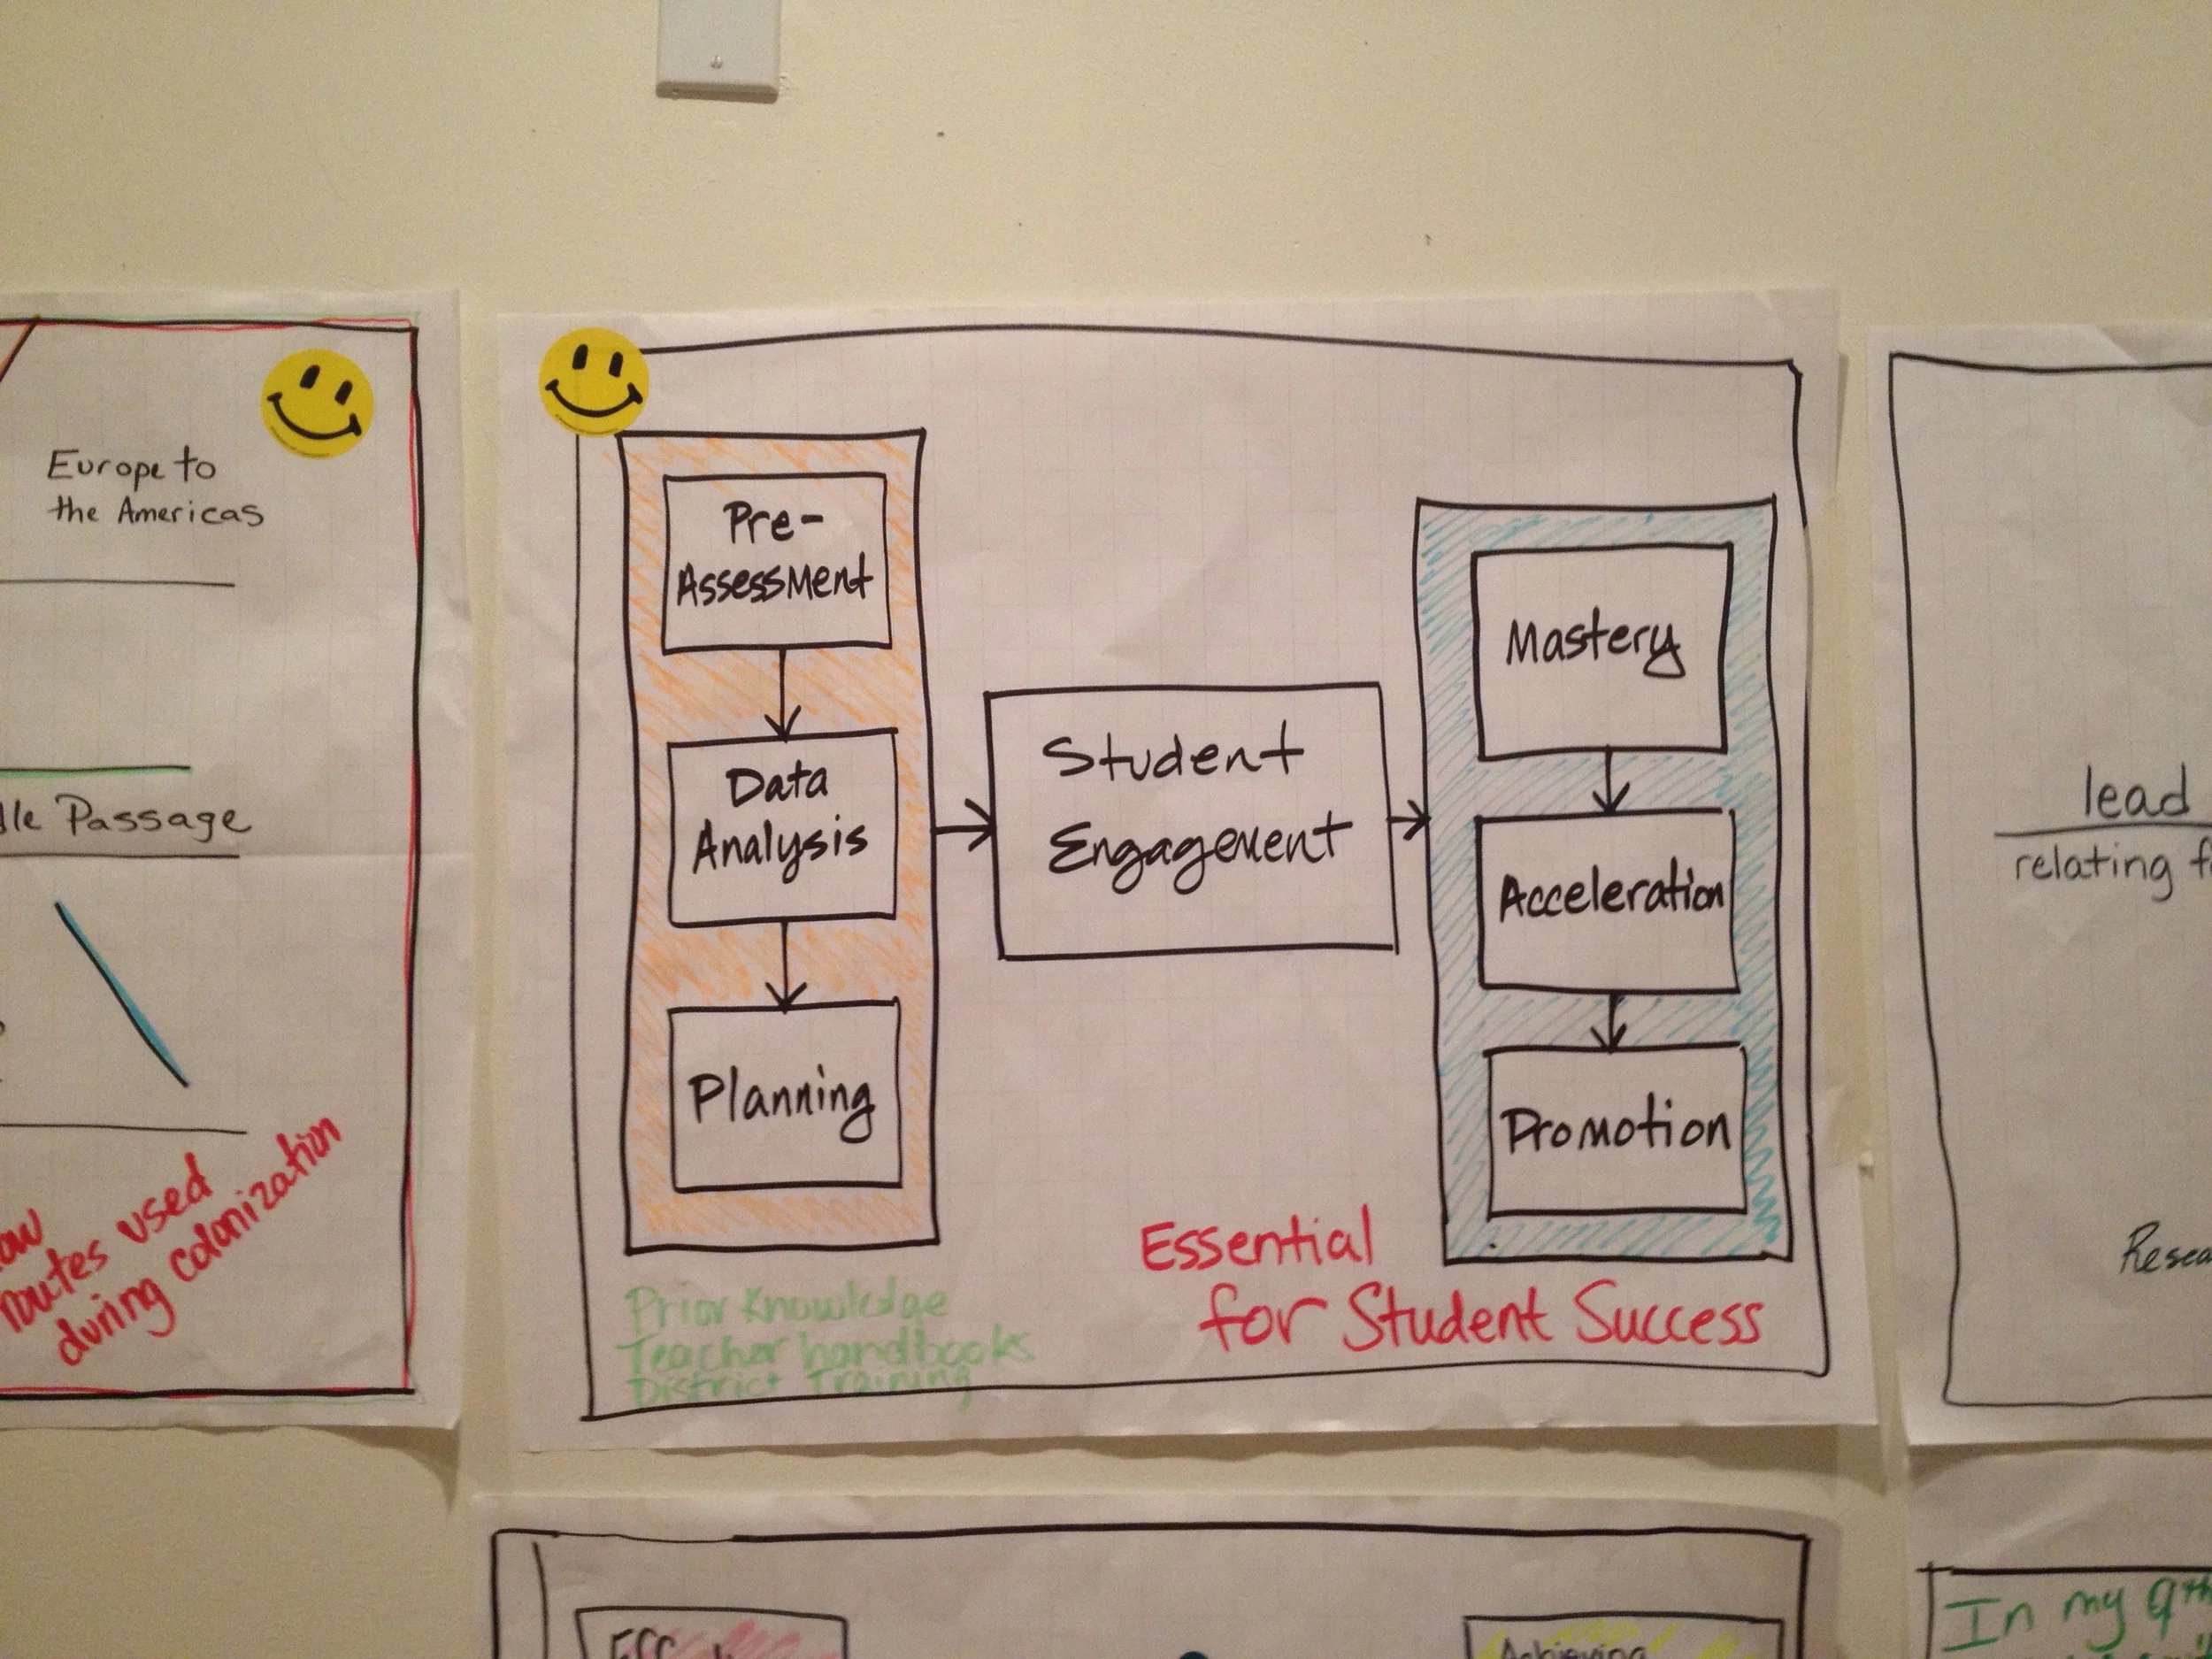 Europe to
the Americas
Passage
routes used
during colonization
Pre-
Assessment
Data
Analysis
Planning
Student
Engagement
Mastery
Acceleration
Promotion
Prior Knowledge
Teacher handbooks
District Training
Essential
for Student Success
lead
relating
In my 9th
Achieving